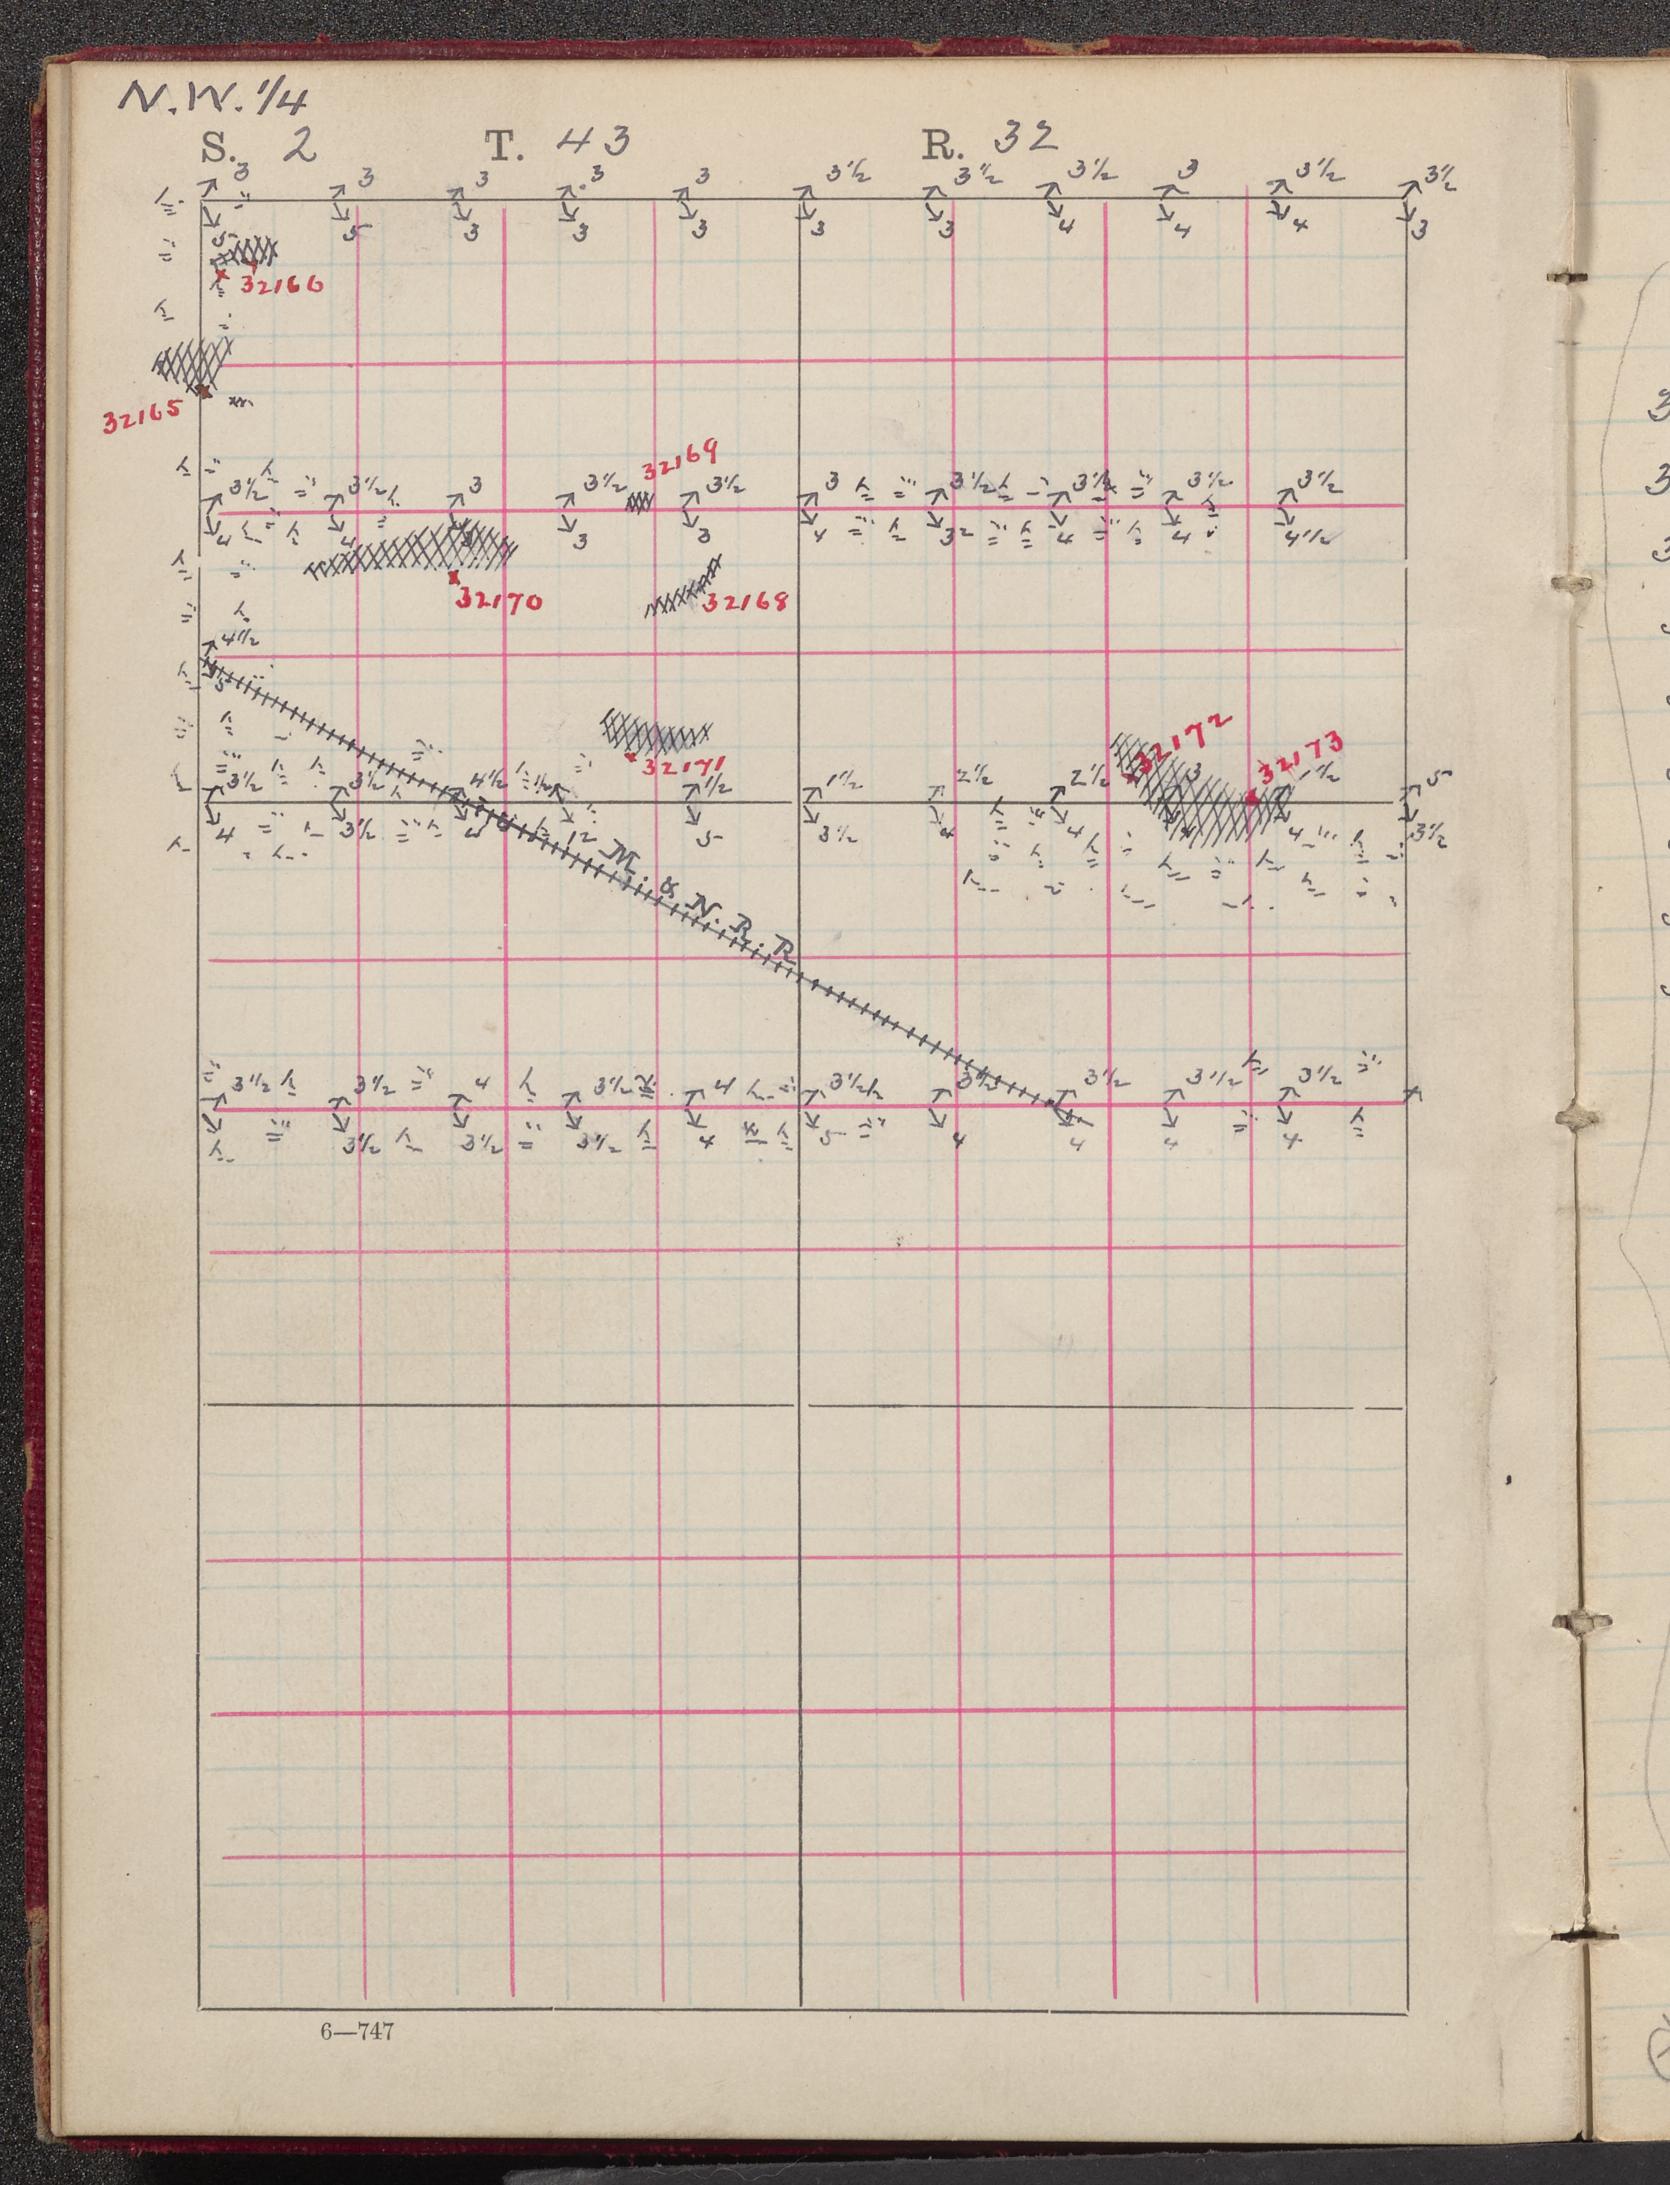 N.W. 1/4
S. 2 T. 43 R. 32
3 3 3 3 3 3 1/2 3 1/2 3 1/2 3 3 1/2 3 1/2
5 5 3 3 3 3 3 4 4 4 3
32166
32165
32169
3 1/2 3 1/2 3 3 1/2 3 1/2 3 3 1/2 3 1/2 3 1/2 3 1/2
4 4 3 3 4 4 4 4 1/2
32170 32168
4 1/2
5
32172
32171 32173
3 1/2 3 1/2 4 1/2 1/2 1 1/2 2 1/2 2 1/2 3 5
4 3 1/2 4 12 5 3 1/2 4 4 4 3 1/2
M. & N. R. R.
3 1/2 3 1/2 4 3 1/2 4 3 1/2 3 1/2 3 1/2 3 1/2 3 1/2
3 1/2 3 1/2 3 1/2 4 5 4 4 4 4
6—747